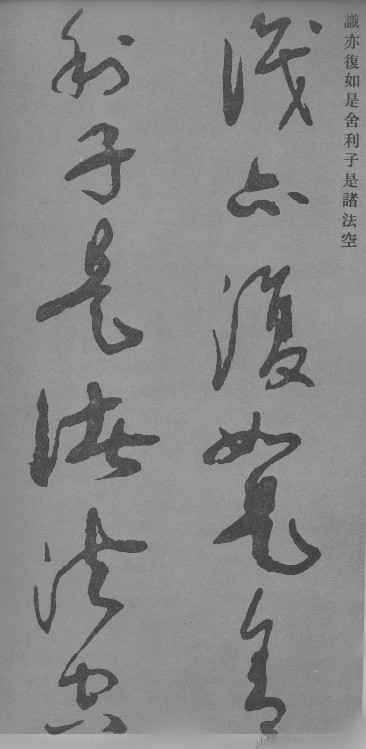 識亦復如是舍利子是諸法空
識亦復如是舍
利子是諸法空